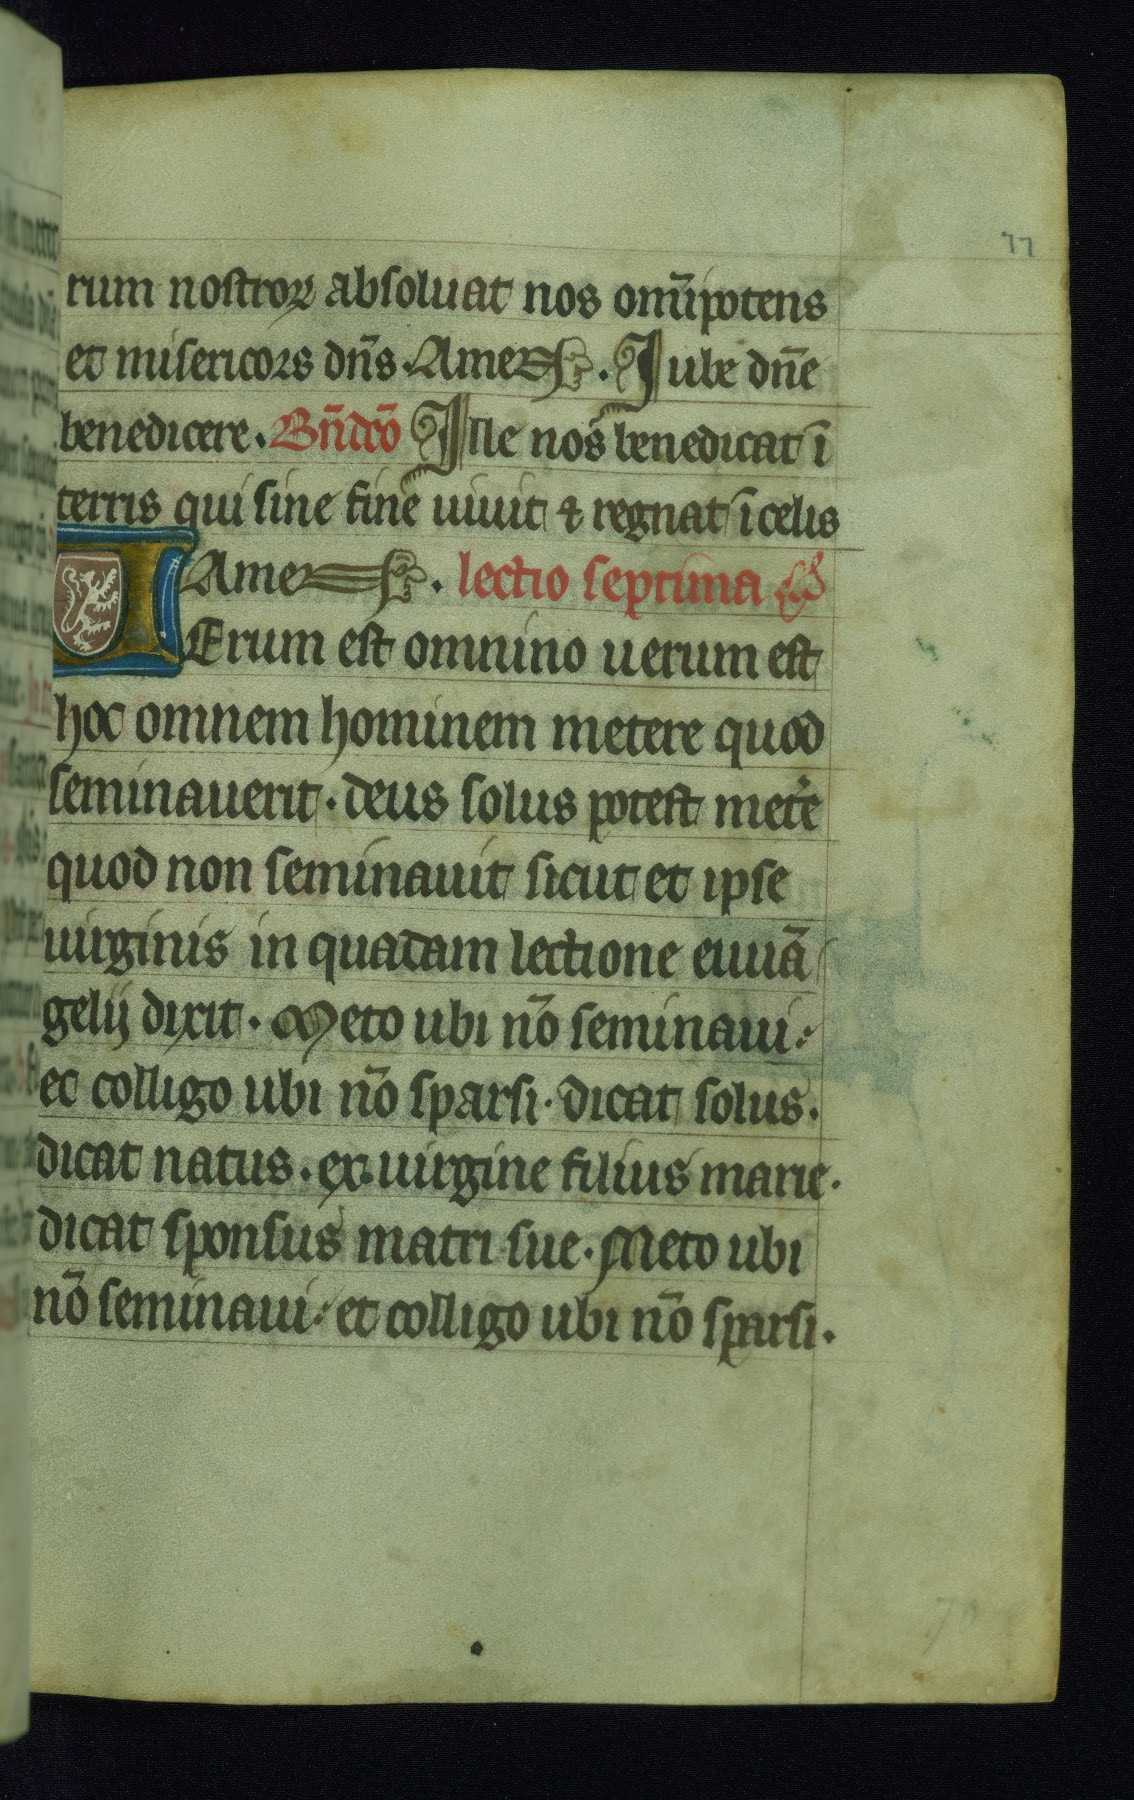 77
rum nostroꝝ absoluat nos om̅ipotens
et misericors dn̅s. Amen. Jube dn̅e
benedicere. Bn̅dc̅o Ille nos benedicat i̅
terris qui sine fine uiuit ⁊ regnat i̅ celis
Amen. lectio septima
UErum est omnino uerum est
hoc omnem hominem metere quod
seminauerit. deus solus potest met̉e
quod non seminauit sicut et ipse
uirginis in quadam lectione euua̅
gelij dixit. Meto ubi no̅ seminaui:
et colligo ubi no̅ sparsi. dicat solus.
dicat natus. ex uirgine filius marie.
dicat sponsus matri sue. Meto ubi
no̅ seminaui: et colligo ubi no̅ sparsi.